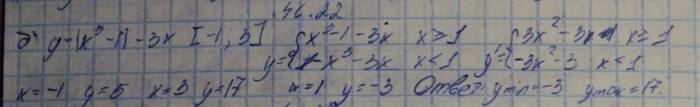 46.22
д) y=|x³-1|-3x [-1; 3] {x³-1-3x x≥1 {3x²-3 x≥1
y={1-x³-3x x<1 y'={-3x²-3 x<1
x=-1 y=5 x=3 y=17 x=1 y=-3 Ответ: ymin=-3 ymax=17.